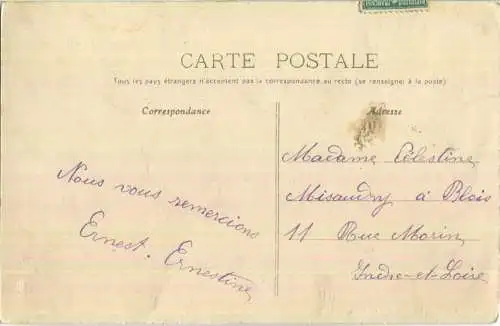 CARTE POSTALE
Tous les pays étrangers n'acceptent pas la correspondance au recto (se renseigner à la poste)
Correspondance
Adresse
Nous vous remercions
Ernest. Ernestine
Madame Célestine
Misandry à Blois
11 Rue Morin
Indre-et-Loire